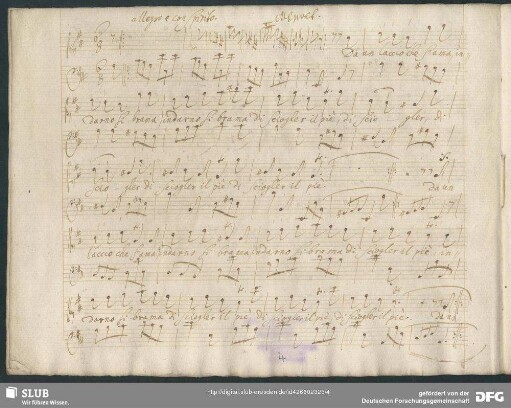 Allegro e con spirito.
Da un laccio che s'ama in
darno si brama indarno si brama di sciogler il piè, di scio gler, di
scio gler di sciogler il piè di sciogler il piè. Da un
laccio che s'ama indarno si brama indarno si brama di sciogler il piè in
darno si brama di sciogler il piè di sciogler il piè, di sciogler il piè. Da un
4
SLUB
Wir führen Wissen.
gefördert von der
Deutschen Forschungsgemeinschaft
DFG